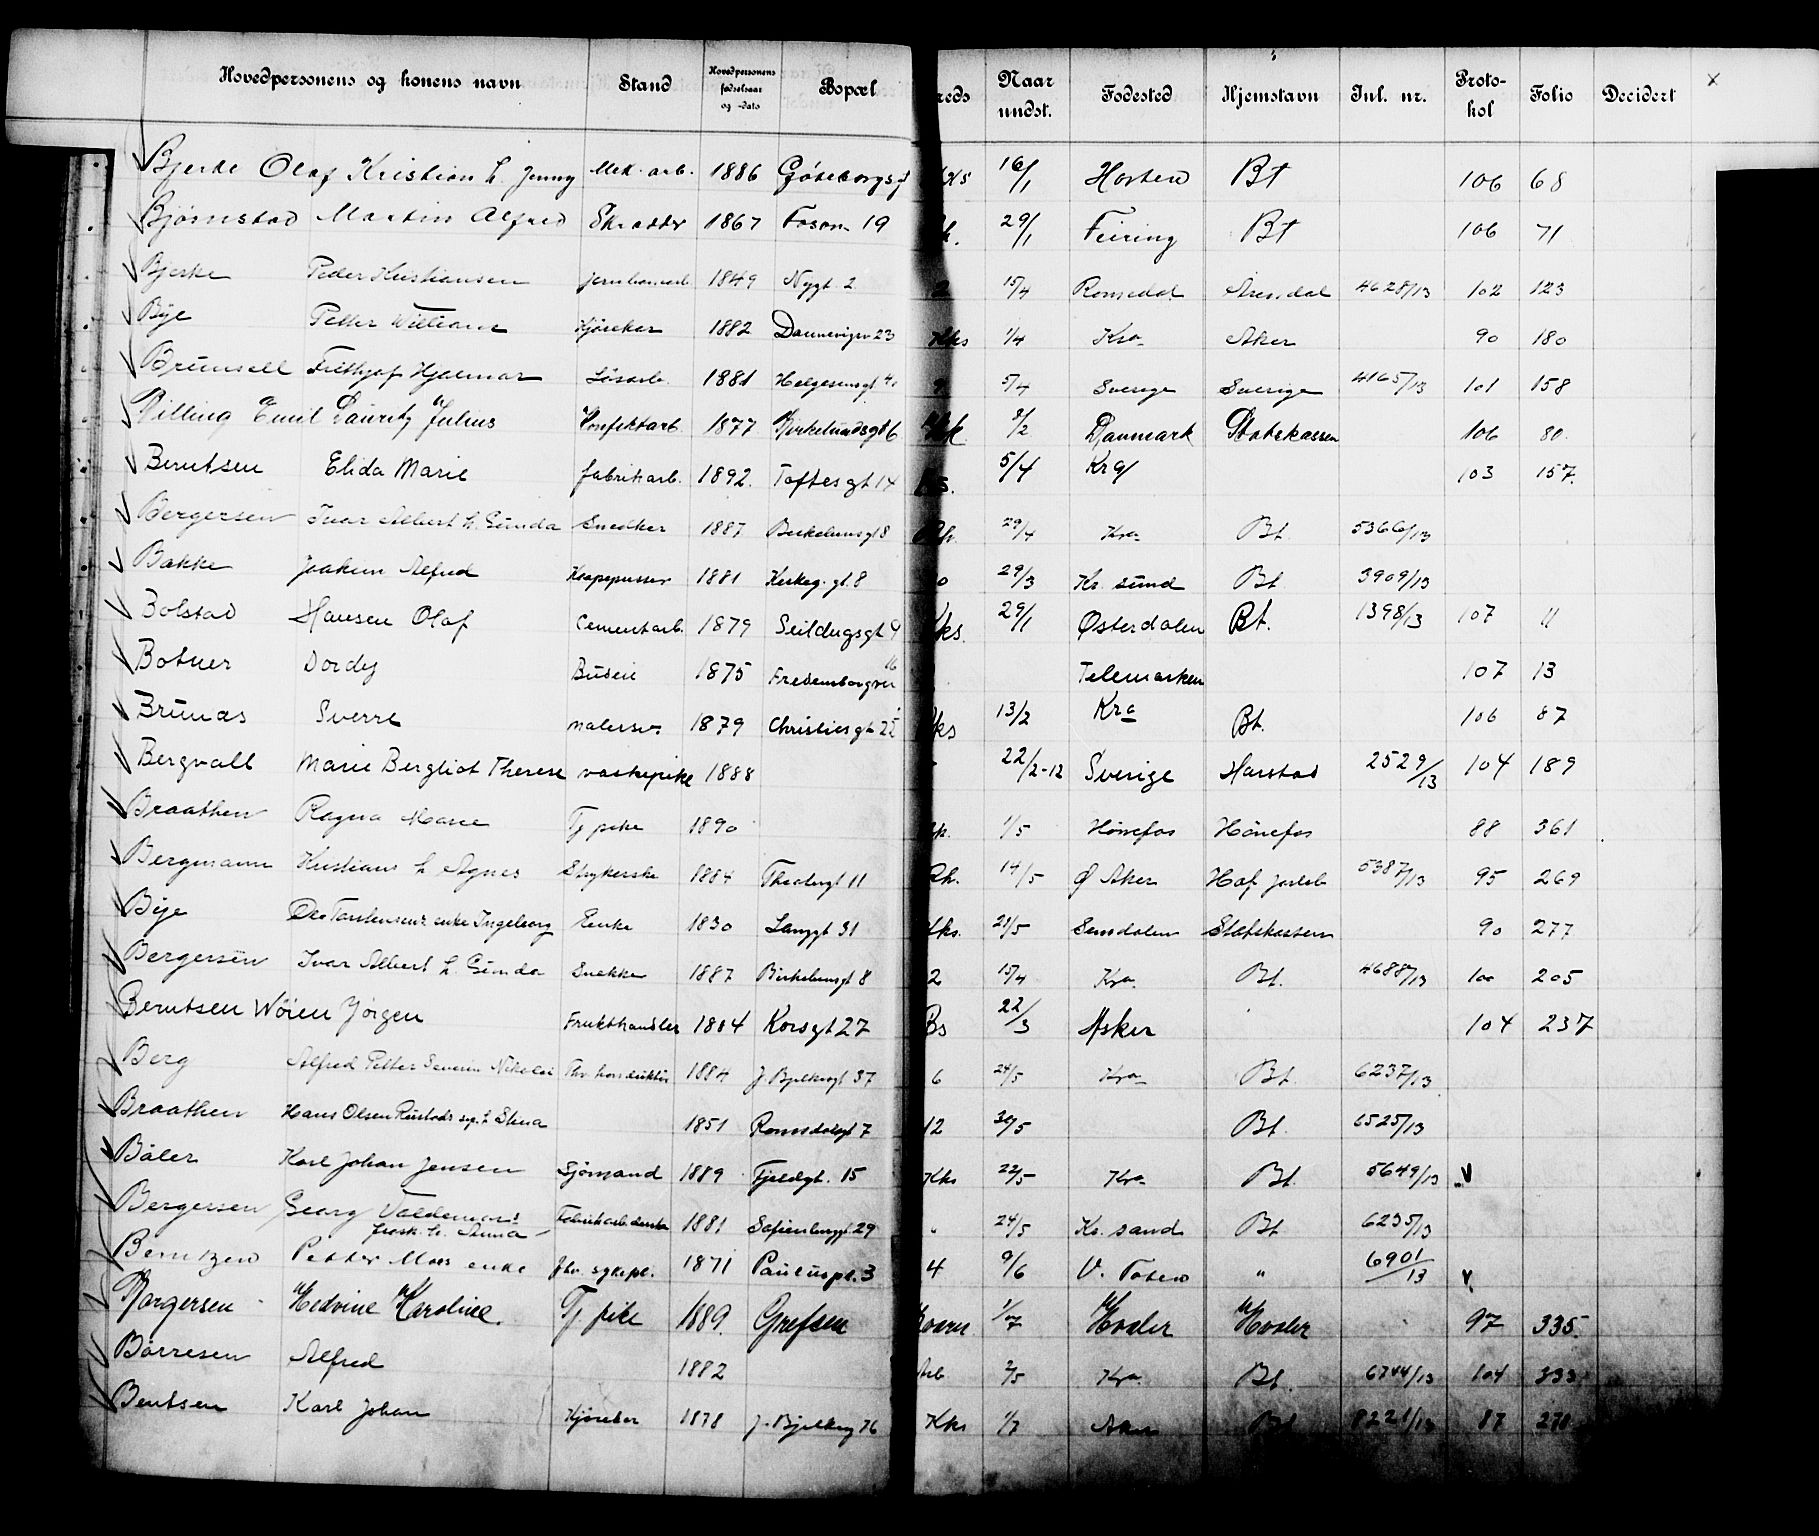 Hovedpersonens og konens navn Stand Hovedpersonens fødselsaar og -dato Bopæl reds Naar undst. Fødested Hjemstavn Inl. nr. Proto- kol Folio Decidert x
Bjerke Olaf Kristian h. Jenny Mek. arb. 1886 Gøteborgsgt Kks 16/1 Horten Bt 106 68
Bjørnstad Martin Alfred Skrædder 1867 Fossn 19 29/1 Feiring Bt 106 71
Bjerke Peder Kristiansen 1849 Nygt 2 2 15/4 Romsdal Arendal 4628/13 102 123
Bye Petter William Kjørekar 1882 Dannevigsv 23 Kks 1/4 Kra Aker 90 180
Brunsell Frithjof Hjalmar Løsarb. 1881 Helgesensgt 9 5/4 Sverige Sverige 4165/13 101 158
Villing Emil Lauritz Julius Konfektarb. 1877 Birkelundsgt 6 8/2 Danmark Statskassen 106 80
Berntsen Elida Marie fabrikarb. 1892 Toftesgt 14 5/4 Kra 103 157
Bergersen Ivar Albert h. Gunda Snedker 1887 Birkelunsgt 8 29/4 Kra Bt. 5366/13
Bakke Joakim Alfred Knapepusser 1881 Kirkeg. gt. 8 29/3 Kr. sund Bt 3909/13
Bolstad Hansen Olaf Cementarb. 1879 Seildugsgt 9 Kks. 29/1 Østerdalen Bt. 1398/13 107 11
Botner Dordy Budeie 1875 Fredensborgvei 16 Telemarken 107 13
Brunæs Sverre malersv. 1879 Christiesgt 22 Kks 13/2 Kra Bt. 106 87
Bergvall Marie Bergliot Therese vaskepike 1888 22/2-12 Sverige Harstad 2529/13 104 189
Braathen Ragna Marie Tj pike 1890 1/5 Hønefos Hønefos 88 361
Bergmann Kristiane h Agnes Strykerske 1884 Theaterst 11 14/5 Ø Aker Hof Jarlsb 5387/13 95 269
Bye Ole Torstensens enke Ingeborg Enke 1830 Langgt 31 Kks. 21/5 Sandalen Statskassen 90 277
Bergersen Ivar Albert h. Gunda Snekker 1887 Birkelunsgt 8 2 15/4 Kra Bt. 4688/13 100 205
Berntsen Wøien Jørgen Frukthandler 1884 Korsgt 27 Bs 22/3 Asker 104 237
Berg Alfred Petter Severin Nikolai Fhv konduktør 1884 J. Bjelkesgt 37 6 24/5 Kra Bt. 6237/13
Braathen Hans Olsen Rustads sep. h Stina 1851 Romsdalsgt 7 12 30/5 Bt. 6525/13
Bøler Karl Johan Jensen Sjømand 1889 Fjeldgt. 15 Kks 22/5 Kra Bt. 5649/13
Bergersen Georg Valdemars Fabrikarbeider 1881 Sofienberggt 29 " 24/5 Kr. sand Bt 6235/13
frask. h. Anna
Berntzen Petter Moes enke fhv. sykepl. 1871 Pauluspl. 3 4 9/6 V. Toten " 6901/13
Borgersen Hedvine Karoline. Tj pike 1889. Grefsen 1/7 Hvaler Hvaler 97 335.
Børresen Alfred 1882 2/5 Kra Bt. 6744/13 104 333
Bentsen Karl Johan Kjøreker 1878 J. Bjelkesg 76 Kks 1/7 Aker Bt 8221/13 87 270